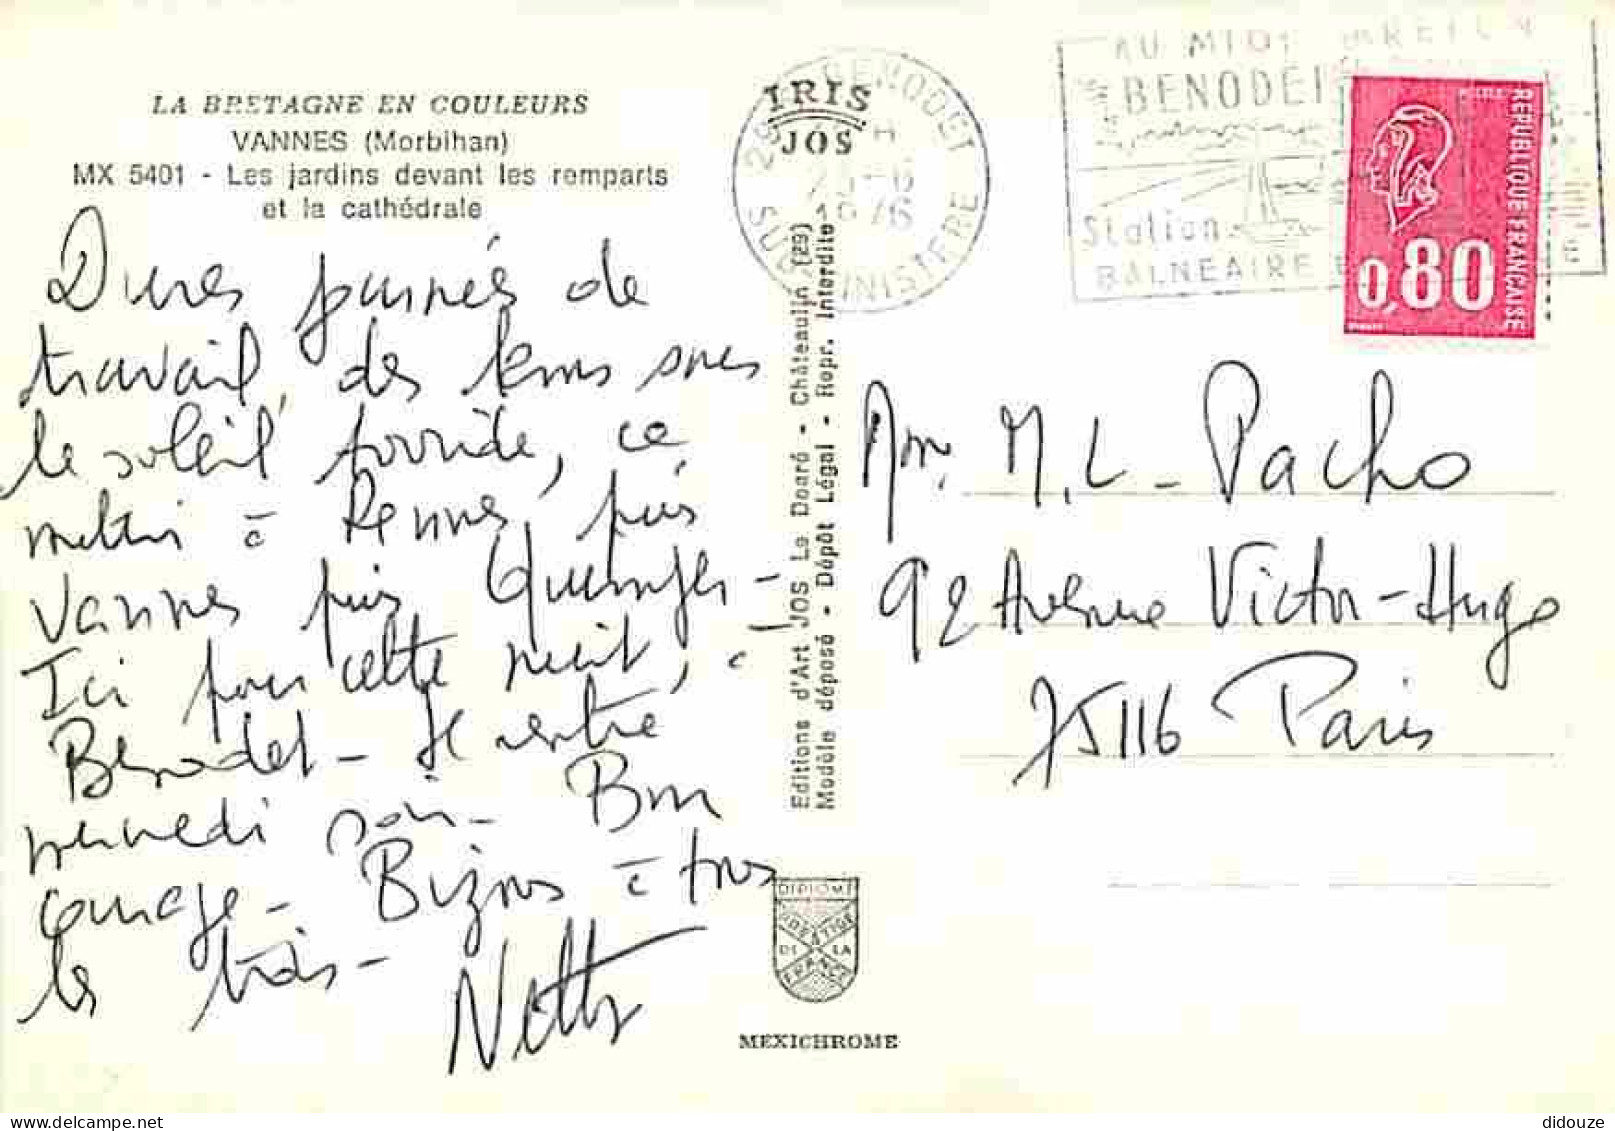 LA BRETAGNE EN COULEURS
VANNES (Morbihan)
MX 5401 - Les jardins devant les remparts
et la cathédrale
Dures journées de
travail, des kms sous
le soleil torride, ce
matin à Rennes, puis
Vannes puis Quimper -
Ici pour cette nuit, à
Bénodet - Je rentre
mercredi soir - Bon
courage - Bizous à tous
les trois -
Netty
IRIS
JOS
29 BENODET
SUD FINISTERE
1976
AU MIDI BRETON
BENODET
Station
BALNEAIRE
REPUBLIQUE FRANÇAISE
0,80
Editions d'Art JOS Le Doaré - Châteaulin (29)
Modèle déposé - Dépôt Légal - Repr. Interdite
Mme M.L- Pacho
92 Avenue Victor-Hugo
75116 Paris
DIPLOME
PRESTIGE
DE LA
FRANCE
MEXICHROME
didouze